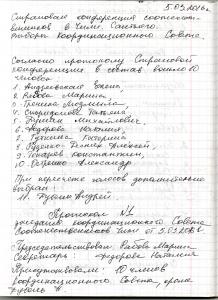 5.03.2016г.
Страновая конференция соотечест-
венников в Чили. Сантьяго.
Выборы Координационного Совета.
Согласно протоколу Страновой
Конференции в состав вошло 10
человек
1. Андреевская Елена,
2. Рябова Марина
3. Гречина Людмила,
4. Татьяна,
5. Михайлович,
6. Федорова Наталия,
7. Екатерина
8. Алексей,
9. Константин,
10. Александр
При пересчете голосов дополнительно
выбран
11. Андрей
Протокол №1
заседания координационного Совета
Соотечественников Чили от 5.03.2016г.
Председательствовал Рябова Марина
Секретарь: Федорова Наталия
Присутствовали: 10 членов
Координационного Совета, кроме